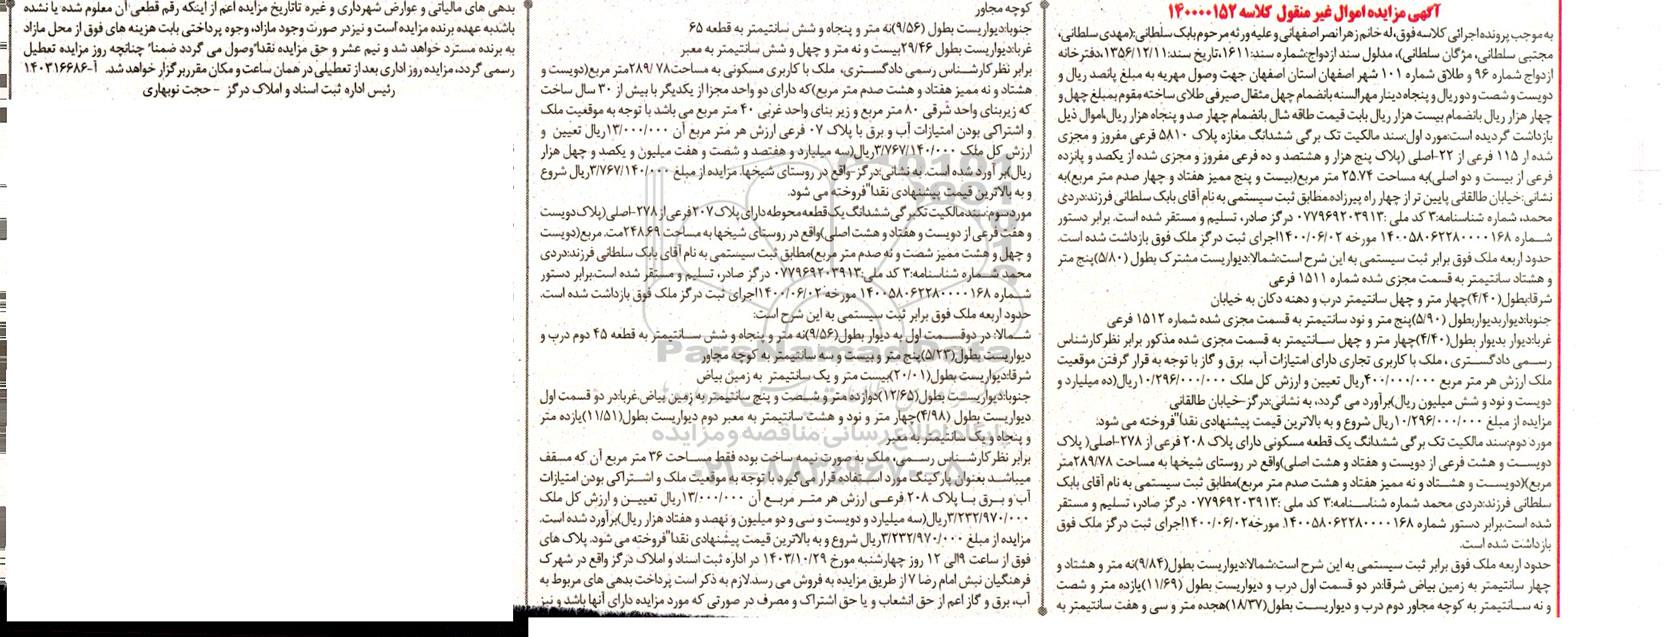 آگهی مزایده اموال غیر منقول کلاسه ۱۴۰۰۰۰۱۵۲
به موجب پرونده اجرائی کلاسه فوق، له خانم زهرا نصر اصفهانی و علیه ورثه مرحوم بابک سلطانی:(مهدی سلطانی،
مجتبی سلطانی، مژگان سلطانی)، مدلول سند ازدواج:شماره سند:۱۶۱۱،تاریخ سند:۱۳۵۶/۱۲/۱۱،دفترخانه
ازدواج شماره ۹۶ و طلاق شماره ۱۰۱ شهر اصفهان استان اصفهان جهت وصول مهریه به مبلغ پانصد ریال و
دویست و شصت و دو ریال و پنجاه دینار مهرالسنه بانضمام چهل مثقال صیرفی طلای ساخته مقوم بمبلغ چهل و
چهار هزار ریال بانضمام بیست هزار ریال بابت قیمت طاقه شال بانضمام چهار صد و پنجاه هزار ریال،اموال ذیل
بازداشت گردیده است:مورد اول:سند مالکیت تک برگی ششدانگ مغازه پلاک ۵۸۱۰ فرعی مفروز و مجزی
شده از ۱۱۵ فرعی از ۲۲-اصلی (پلاک پنج هزار و هشتصد و ده فرعی مفروز و مجزی شده از یکصد و پانزده
فرعی از بیست و دو اصلی)به مساحت ۲۵.۷۴ متر مربع(بیست و پنج ممیز هفتاد و چهار صدم متر مربع)به
نشانی:خیابان طالقانی پایین تر از چهار راه پیرزاده مطابق ثبت سیستمی به نام آقای بابک سلطانی فرزند:دردی
محمد، شماره شناسنامه:۳ کد ملی :۰۷۷۹۶۹۲۰۳۹۱۳ درگز صادر، تسلیم و مستقر شده است. برابر دستور
شماره ۱۴۰۰۵۸۰۶۲۲۸۰۰۰۰۱۶۸ مورخه ۱۴۰۰/۰۶/۰۲اجرای ثبت درگز ملک فوق بازداشت شده است.
حدود اربعه ملک فوق برابر ثبت سیستمی به این شرح است:شمالا:دیواریست مشترک بطول (۵/۸۰)پنج متر
و هشتاد سانتیمتر به قسمت مجزی شده شماره ۱۵۱۱ فرعی
شرقا:بطول(۴/۴۰)چهار متر و چهل سانتیمتر درب و دهنه دکان به خیابان
جنوبا:دیوار بدیواربطول (۵/۹۰)پنج متر و نود سانتیمتر به قسمت مجزی شده شماره ۱۵۱۲ فرعی
غربا:دیوار بدیوار بطول(۴/۴۰)چهار متر و چهل سانتیمتر به قسمت مجزی شده مذکور برابر نظر کارشناس
رسمی دادگستری ، ملک با کاربری تجاری دارای امتیازات آب، برق و گاز با توجه به قرار گرفتن موقعیت
ملک ارزش هر متر مربع ۴۰۰/۰۰۰/۰۰۰ریال تعیین و ارزش کل ملک ۱۰/۲۹۶/۰۰۰/۰۰۰ ریال(ده میلیارد و
دویست و نود و شش میلیون ریال)برآورد می گردد، به نشانی:درگز-خیابان طالقانی
مزایده از مبلغ ۱۰/۲۹۶/۰۰۰/۰۰۰ریال شروع و به بالاترین قیمت پیشنهادی نقدا"فروخته می شود:
مورد دوم:سند مالکیت تک برگی ششدانگ یک قطعه مسکونی دارای پلاک ۲۰۸ فرعی از ۲۷۸-اصلی( پلاک
دویست و هشت فرعی از دویست و هفتاد و هشت اصلی)واقع در روستای شیخها به مساحت ۲۸۹/۷۸متر
مربع)(دویست و هشتاد و نه ممیز هفتاد و هشت صدم متر مربع)مطابق ثبت سیستمی به نام آقای بابک
سلطانی فرزند:دردی محمد شماره شناسنامه:۳ کد ملی :۰۷۷۹۶۹۲۰۳۹۱۳ درگز صادر، تسلیم و مستقر
شده است،برابر دستور شماره ۱۴۰۰۵۸۰۶۲۲۸۰۰۰۰۱۶۸ مورخه۱۴۰۰/۰۶/۰۲اجرای ثبت درگز ملک فوق
بازداشت شده است.
حدود اربعه ملک فوق برابر ثبت سیستمی به این شرح است:شمالا:دیواریست بطول(۹/۸۴)نه متر و هشتاد و
چهار سانتیمتر به زمین بیاض شرقا:در دو قسمت اول درب و دیواریست بطول (۱۱/۶۹)یازده متر و شصت
و نه سانتیمتر به کوچه مجاور دوم درب و دیواریست بطول(۱۸/۳۷)هجده متر و سی و هفت سانتیمتر به
کوچه مجاور
جنوبا:دیواریست بطول (۹/۵۶)نه متر و پنجاه و شش سانتیمتر به قطعه ۶۵
غربا:دیواریست بطول ۲۹/۴۶بیست و نه متر و چهل و شش سانتیمتر به معبر
برابر نظر کارشناس رسمی دادگستری، ملک با کاربری مسکونی به مساحت۲۸۹/۷۸متر مربع(دویست و
هشتاد و نه ممیز هفتاد و هشت صدم متر مربع)که دارای دو واحد مجزا از یکدیگر با بیش از ۳۰ سال ساخت
که زیربنای واحد شرقی ۸۰ متر مربع و زیر بنای واحد غربی ۴۰ متر مربع می باشد با توجه به موقعیت ملک
و اشتراکی بودن امتیازات آب و برق با پلاک ۰۷ فرعی ارزش هر متر مربع آن ۱۳/۰۰۰/۰۰۰ریال تعیین و
ارزش کل ملک ۳/۷۶۷/۱۴۰/۰۰۰ریال(سه میلیارد و هفتصد و شصت و هفت میلیون و یکصد و چهل هزار
ریال)بر آورد شده است. به نشانی:درگز-واقع در روستای شیخها. مزایده از مبلغ ۳/۷۶۷/۱۴۰/۰۰۰ریال شروع
و به بالاترین قیمت پیشنهادی نقدا"فروخته می شود.
مورد سوم:سند مالکیت تکبرگی ششدانگ یک قطعه محوطه دارای پلاک ۲۰۷فرعی از ۲۷۸-اصلی(پلاک دویست
و هفت فرعی از دویست و هفتاد و هشت اصلی)واقع در روستای شیخها به مساحت ۲۴۸.۶۹مت. مربع(دویست
و چهل و هشت ممیز شصت و نه صدم متر مربع)مطابق ثبت سیستمی به نام آقای بابک سلطانی فرزند:دردی
محمد شماره شناسنامه:۳ کد ملی:۰۷۷۹۶۹۲۰۳۹۱۳ درگز صادر، تسلیم و مستقر شده است.برابر دستور
شماره ۱۴۰۰۵۸۰۶۲۲۸۰۰۰۰۱۶۸ مورخه ۱۴۰۰/۰۶/۰۲اجرای ثبت درگز ملک فوق بازداشت شده است.
حدود اربعه ملک فوق برابر ثبت سیستمی به این شرح است:
شمالا: در دوقسمت اول به دیوار بطول(۹/۵۶)نه متر و پنجاه و شش سانتیمتر به قطعه ۴۵ دوم درب و
دیواریست بطول(۵/۲۳)پنج متر و بیست و سه سانتیمتر به کوچه مجاور
شرقا:دیواریست بطول(۲۰/۰۱)بیست متر و یک سانتیمتر به زمین بیاض
جنوبا:دیواریست بطول(۱۲/۶۵)دوازده متر و شصت و پنج سانتیمتر به زمین بیاض.غربا:در دو قسمت اول
دیواریست بطول (۴/۹۸)چهار متر و نود و هشت سانتیمتر به معبر دوم دیواریست بطول(۱۱/۵۱)یازده متر
و پنجاه و یک سانتیمتر به معبر
برابر نظر کارشناس رسمی، ملک به صورت نیمه ساخت بوده فقط مساحت ۳۶ متر مربع آن که مسقف
میباشد بعنوان پارکینگ مورد استفاده قرار می گیرد با توجه به موقعیت ملک و اشتراکی بودن امتیازات
آب و برق با پلاک ۲۰۸ فرعی ارزش هر متر مربع آن ۱۳/۰۰۰/۰۰۰ریال تعیین و ارزش کل ملک
۳/۲۳۲/۹۷۰/۰۰۰ریال(سه میلیارد و دویست و سی و دو میلیون و نهصد و هفتاد هزار ریال)برآورد شده است.
مزایده از مبلغ ۳/۲۳۲/۹۷۰/۰۰۰ریال شروع و به بالاترین قیمت پیشنهادی نقدا"فروخته می شود. پلاک های
فوق از ساعت ۹الی ۱۲ روز چهارشنبه مورخ ۱۴۰۳/۱۰/۲۹ در اداره ثبت اسناد و املاک درگز واقع در شهرک
فرهنگیان نبش امام رضا ۷ از طریق مزایده به فروش می رسد.لازم به ذکر است پرداخت بدهی های مربوط به
آب، برق و گاز اعم از حق انشعاب و یا حق اشتراک و مصرف در صورتی که مورد مزایده دارای آنها باشد و نیز
بدهی های مالیاتی و عوارض شهرداری و غیره تاتاریخ مزایده اعم از اینکه رقم قطعی آن معلوم شده یا نشده
باشدبه عهده برنده مزایده است و نیز در صورت وجود مازاد، وجوه پرداختی بابت هزینه های فوق از محل مازاد
به برنده مسترد خواهد شد و نیم عشر و حق مزایده نقدا"وصول می گردد ضمنا" چنانچه روز مزایده تعطیل
رسمی گردد، مزایده روز اداری بعد از تعطیلی در همان ساعت و مکان مقرر برگزار خواهد شد. آ-۱۴۰۳۱۶۶۸۶
رئیس اداره ثبت اسناد و املاک درگز - حجت نوبهاری
ParsNamadData
پایگاه اطلاع رسانی مناقصه و مزایده
۰۲۱-۸۸۳۴۹۶۷۰-۵